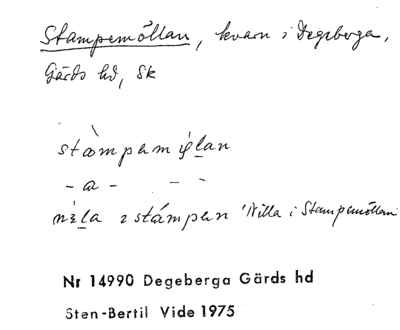 Stampemöllan, kvarn i Degeberga,
Gärds hd, Sk
stàmpemø̀lan
- a - - -
nìla i stámpen 'Nilla i Stampemöllan'
Nr 14990 Degeberga Gärds hd
Sten-Bertil Vide 1975